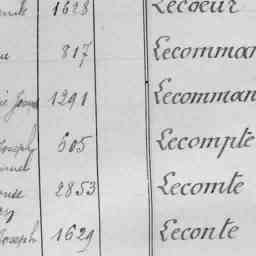 1628 Lecoeur
817 Lecomman
1291 Lecomman
Joseph 605 Lecompte
2853 Lecomte
Joseph 1629 Leconte